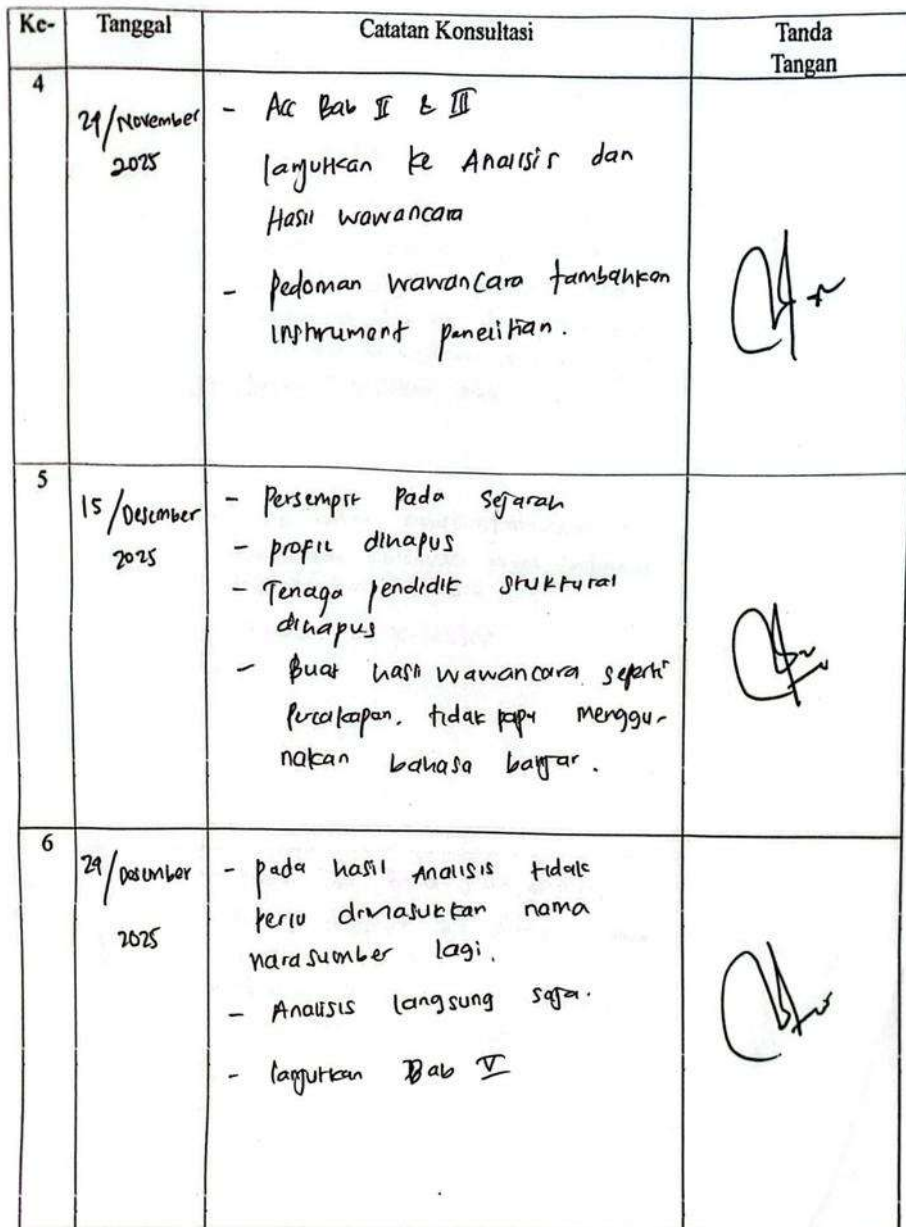 Ke- Tanggal Catatan Konsultasi Tanda
Tangan
4
29/November - Acc Bab II & III
2025 lanjutkan ke Analisis dan
Hasil wawancara
- Pedoman wawancara tambahkan
instrument penelitian.
5
15/Desember - Persempit pada sejarah
2025 - profil dihapus
- Tenaga pendidik struktural
dihapus
- Buat hasil wawancara seperti
percakapan. tidak papa menggu-
nakan bahasa banjar.
6
29/Desember - pada hasil Analisis tidak
2025 perlu dimasukkan nama
narasumber lagi.
- Analisis langsung saja.
- lanjutkan Bab V